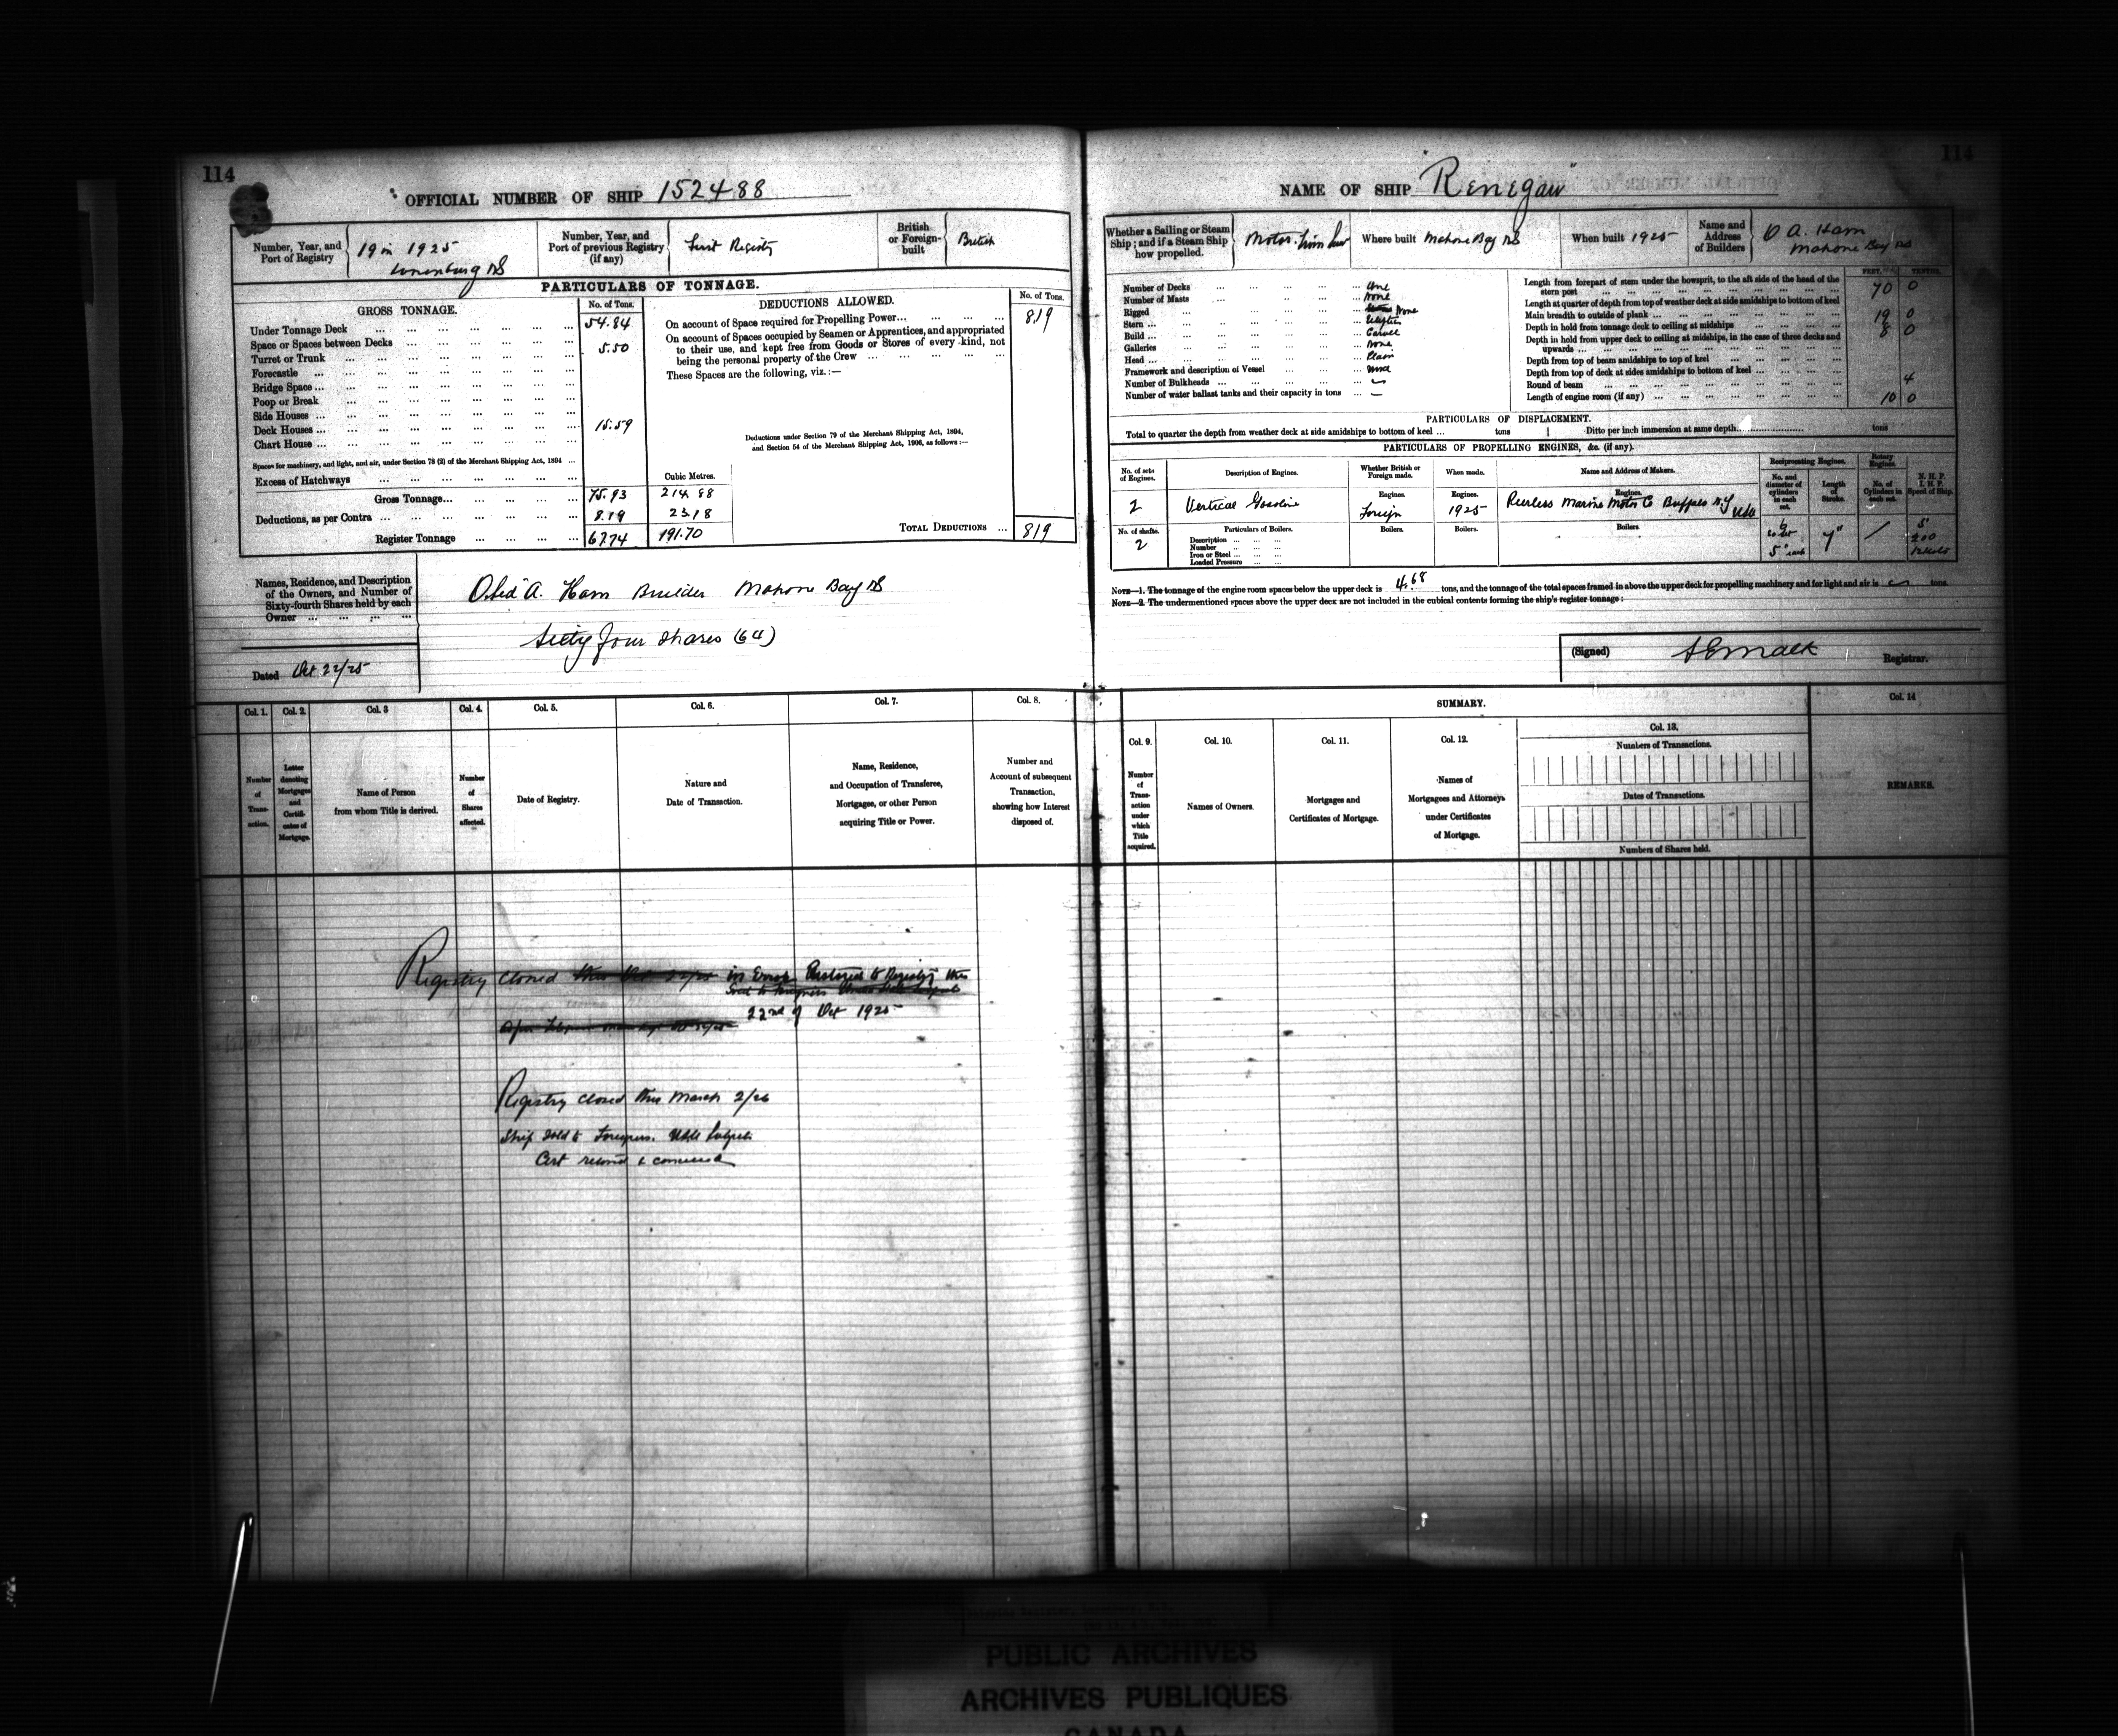 114
OFFICIAL NUMBER OF SHIP 152488
Number, Year, and Port of Registry
19 in 1925
Lunenburg NS
Number, Year, and Port of previous Registry (if any)
First Registry
British or Foreign-built
British
PARTICULARS OF TONNAGE.
GROSS TONNAGE.
No. of Tons.
Under Tonnage Deck 54.84
Space or Spaces between Decks
5.50
Turret or Trunk
Forecastle
Bridge Space
Poop or Break
Side Houses
Deck Houses 15.59
Chart House
Spaces for machinery, and light, and air, under Section 78 (2) of the Merchant Shipping Act, 1894
Excess of Hatchways
Cubic Metres.
Gross Tonnage 75.93 214.88
Deductions, as per Contra 8.19 23.18
Register Tonnage 67.74 191.70
DEDUCTIONS ALLOWED.
No. of Tons.
On account of Space required for Propelling Power 8.19
On account of Spaces occupied by Seamen or Apprentices, and appropriated
to their use, and kept free from Goods or Stores of every kind, not
being the personal property of the Crew
These Spaces are the following, viz.:—
Deductions under Section 79 of the Merchant Shipping Act, 1894,
and Section 54 of the Merchant Shipping Act, 1906, as follows:—
TOTAL DEDUCTIONS 819
Names, Residence, and Description
of the Owners, and Number of
Sixty-fourth Shares held by each
Owner
Obed A. Ham Builder Mahone Bay NS
Sixty four shares (64)
Dated Oct 22/25
114
NAME OF SHIP "Renegaw"
Whether a Sailing or Steam Ship; and if a Steam Ship how propelled.
Motor. Twin Screw
Where built Mahone Bay NS
When built 1925
Name and Address of Builders
O A. Ham
Mahone Bay NS
Number of Decks One
Number of Masts None
Rigged None
Stern Elliptic
Build Carvel
Galleries None
Head Plain
Framework and description of Vessel Wood
Number of Bulkheads
Number of water ballast tanks and their capacity in tons
FEET. TENTHS.
Length from forepart of stem under the bowsprit, to the aft side of the head of the
stern post 70 0
Length at quarter of depth from top of weather deck at side amidships to bottom of keel
Main breadth to outside of plank 19 0
Depth in hold from tonnage deck to ceiling at midships 8 0
Depth in hold from upper deck to ceiling at midships, in the case of three decks and
upwards
Depth from top of beam amidships to top of keel
Depth from top of deck at sides amidships to bottom of keel
Round of beam 4
Length of engine room (if any) 10 0
PARTICULARS OF DISPLACEMENT.
Total to quarter the depth from weather deck at side amidships to bottom of keel ... tons
Ditto per inch immersion at same depth tons
PARTICULARS OF PROPELLING ENGINES, &c. (if any).
No. of sets of Engines.
Description of Engines.
Whether British or Foreign made.
When made.
Name and Address of Makers.
Reciprocating Engines.
Rotary Engines.
No. and diameter of cylinders in each set.
Length of Stroke.
No. of Cylinders in each set.
N. H. P.
I. H. P.
Speed of Ship.
2
Vertical Gasoline
Engines.
Foreign
Engines.
1925
Engines.
Peerless Marine Motor Co Buffalo N.Y USA
No. of shafts.
2
Particulars of Boilers.
Description
Number
Iron or Steel
Loaded Pressure
Boilers.
Boilers.
Boilers.
6
5" each
7"
200
NOTE—1. The tonnage of the engine room spaces below the upper deck is 4.68 tons, and the tonnage of the total spaces framed in above the upper deck for propelling machinery and for light and air is tons.
NOTE—2. The undermentioned spaces above the upper deck are not included in the cubical contents forming the ship's register tonnage:
(Signed) Registrar.
Col. 1.
Col. 2.
Col. 3
Col. 4.
Col. 5.
Col. 6.
Col. 7.
Col. 8.
Number of Transaction.
Letter denoting Mortgages and Certificates of Mortgage.
Name of Person from whom Title is derived.
Number of Shares affected.
Date of Registry.
Nature and Date of Transaction.
Name, Residence, and Occupation of Transferee, Mortgagee, or other Person acquiring Title or Power.
Number and Account of subsequent Transaction, showing how Interest disposed of.
SUMMARY.
Col. 9.
Col. 10.
Col. 11.
Col. 12.
Col. 13.
Col. 14
Number of Transaction under which Title acquired.
Names of Owners.
Mortgages and Certificates of Mortgage.
Names of Mortgagees and Attorneys under Certificates of Mortgage.
Numbers of Transactions.
Dates of Transactions.
Numbers of Shares held.
REMARKS.
Registry closed in Error Restored to Registry this
22nd of Oct 1925
Registry closed this March 2/26
Ship sold to Foreigners.
Cert
PUBLIC ARCHIVES
ARCHIVES PUBLIQUES
CANADA